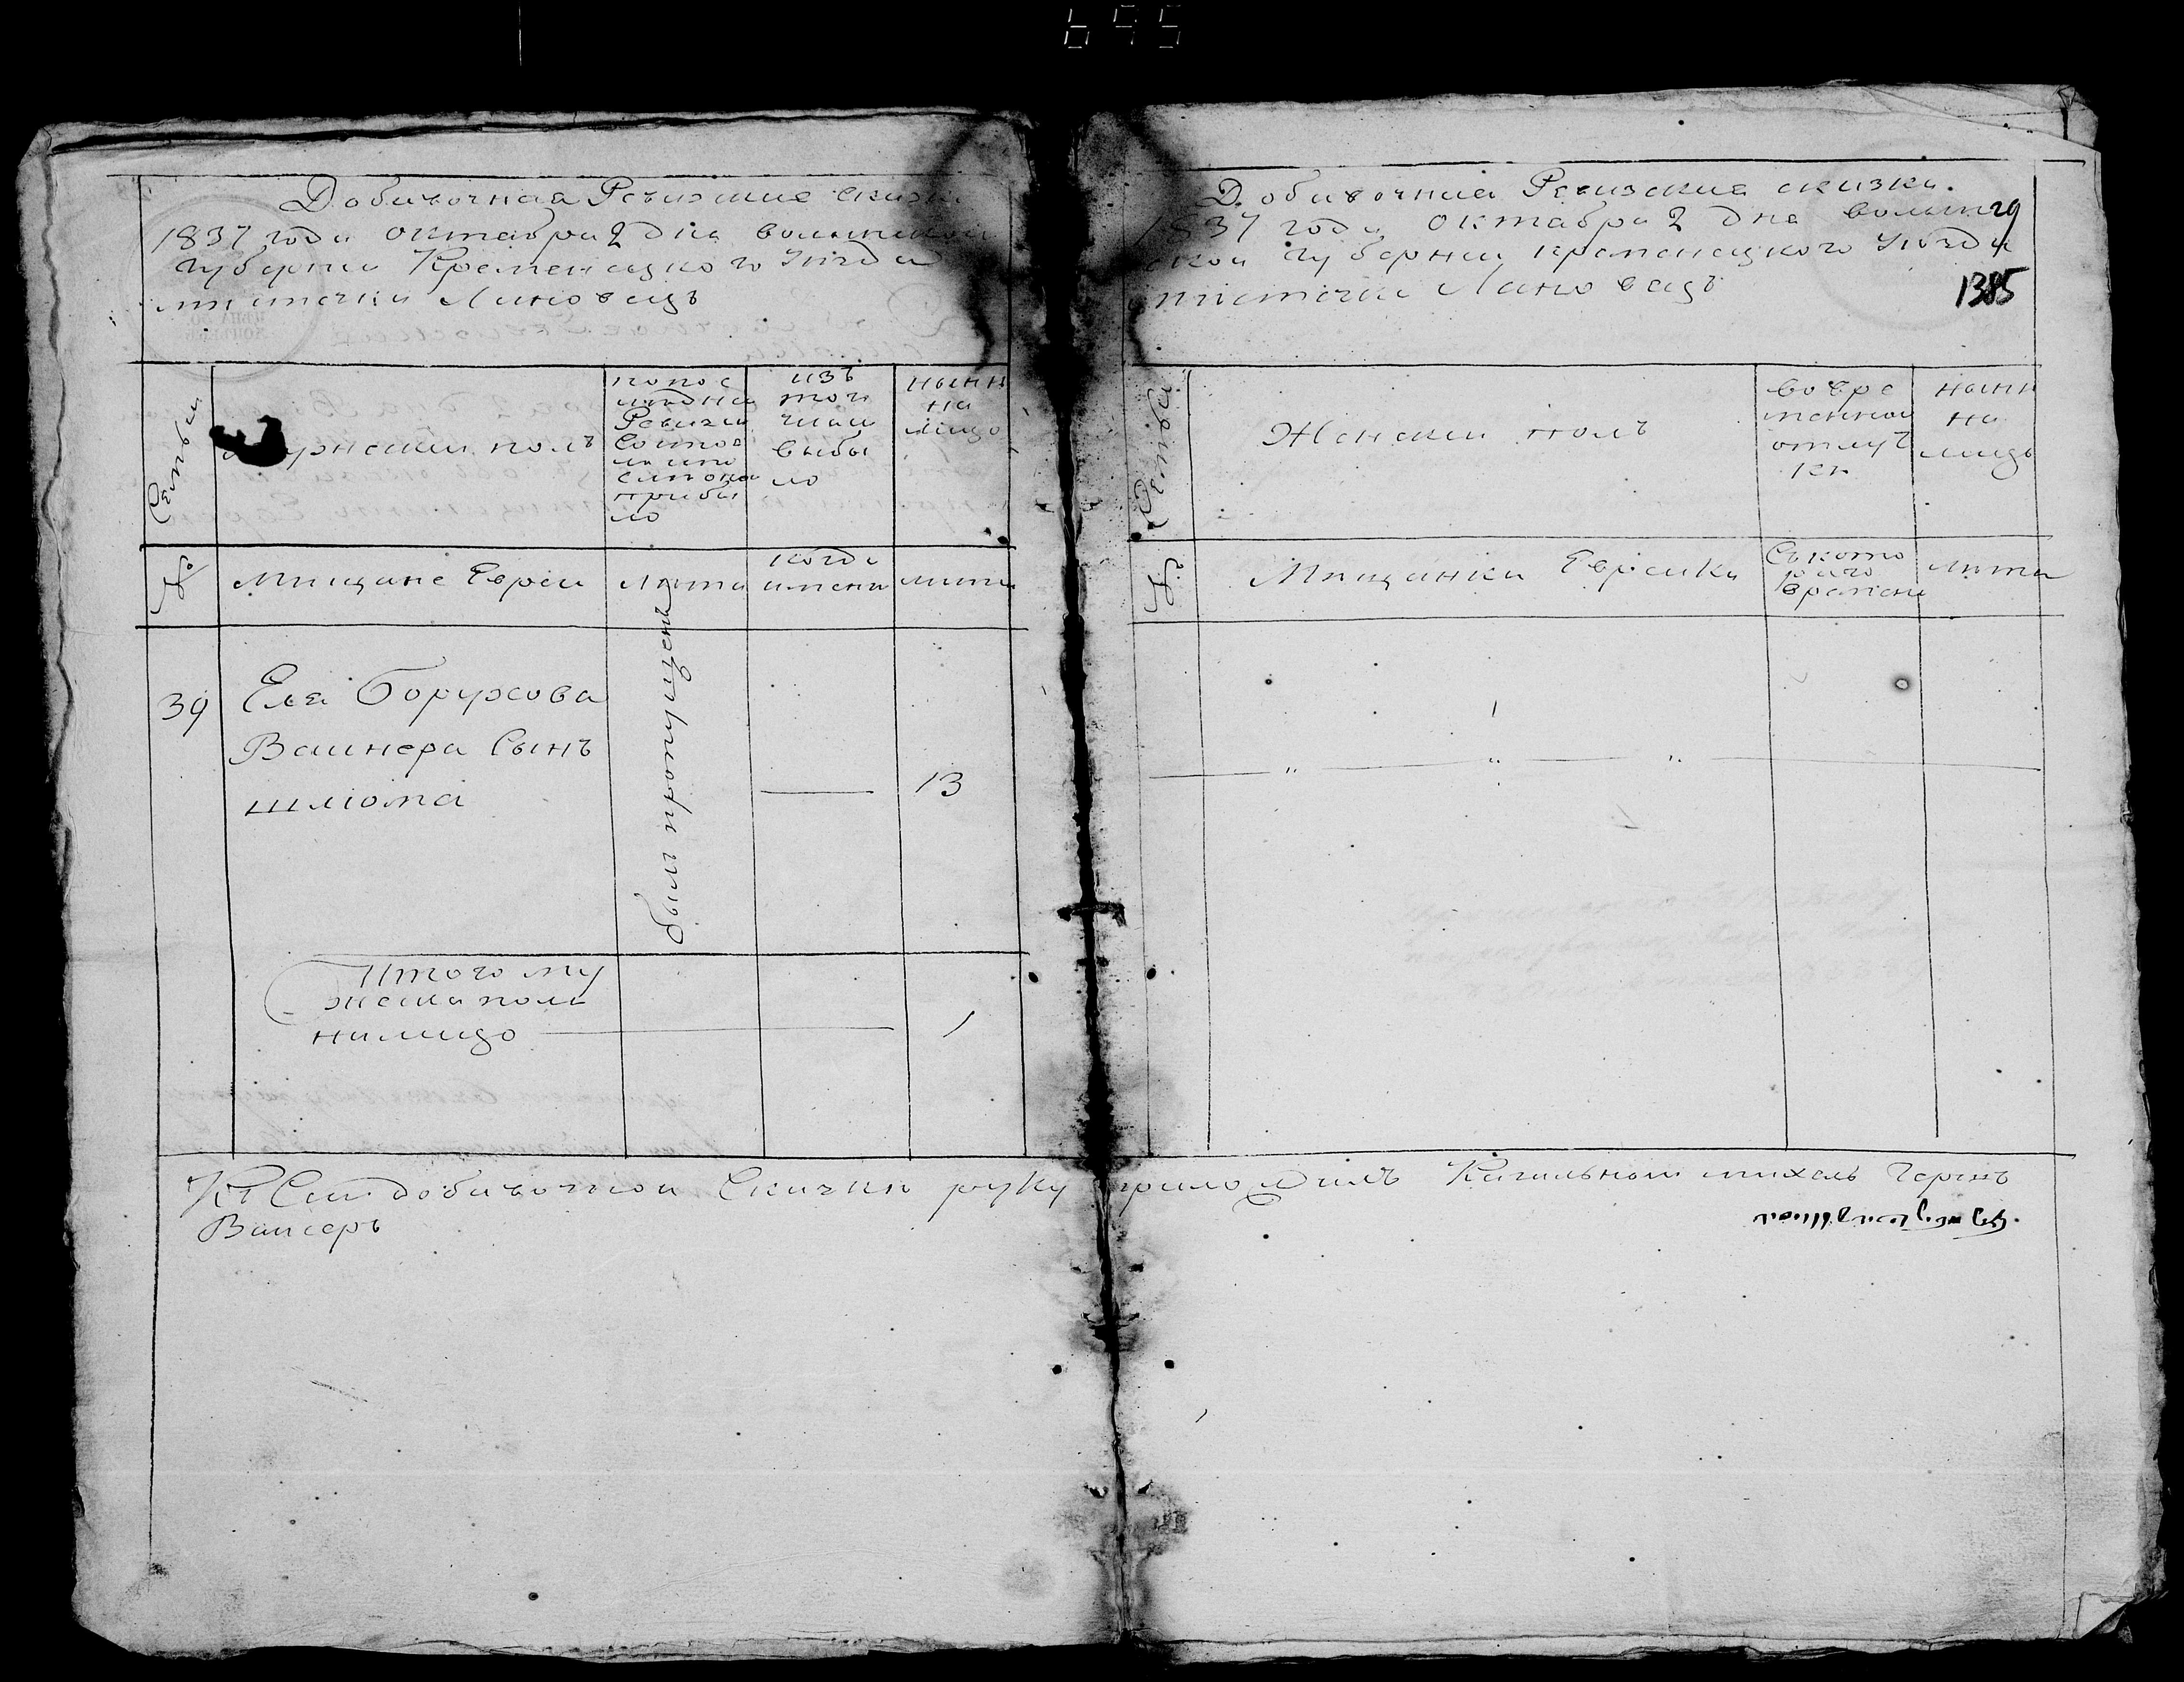 695
Добавочная Ревизские сказки
1837 года октабра 2 дна волынской
губернии Кременецкого Уѣзда
мѣстечка Лановецъ
Семьи
Мужескии полъ
попос
лѣдней
Ревизии
Состоя
ло и по
слѣ оной
прибы
ло
изъ
того
числа
выбы
ло
нынѣ
на
лицо
№
Мѣщане Евреи
Лѣта
когда
имено
лѣта
39
Еля Борухова
Ваинера Сынъ
шлиома
былъ пропущенъ
13
Итого му
жеска пола
налицо
1
Добавочниа Ревизские сказки.
1837 года октабра 2 дна волын
ской губернии кременецкого Уѣзда
мѣстечка Лановецъ
29
1385
Семьи
Женскии полъ
вовре
менной
отлуч
кѣ
нынѣ
на
лицо
№
Мѣщанки Евреики
Съкото
рого
времени
лѣта
Къ Сей добавочной Сказки руку приложилъ Кагальный михель Гершъ
Ваисеръ